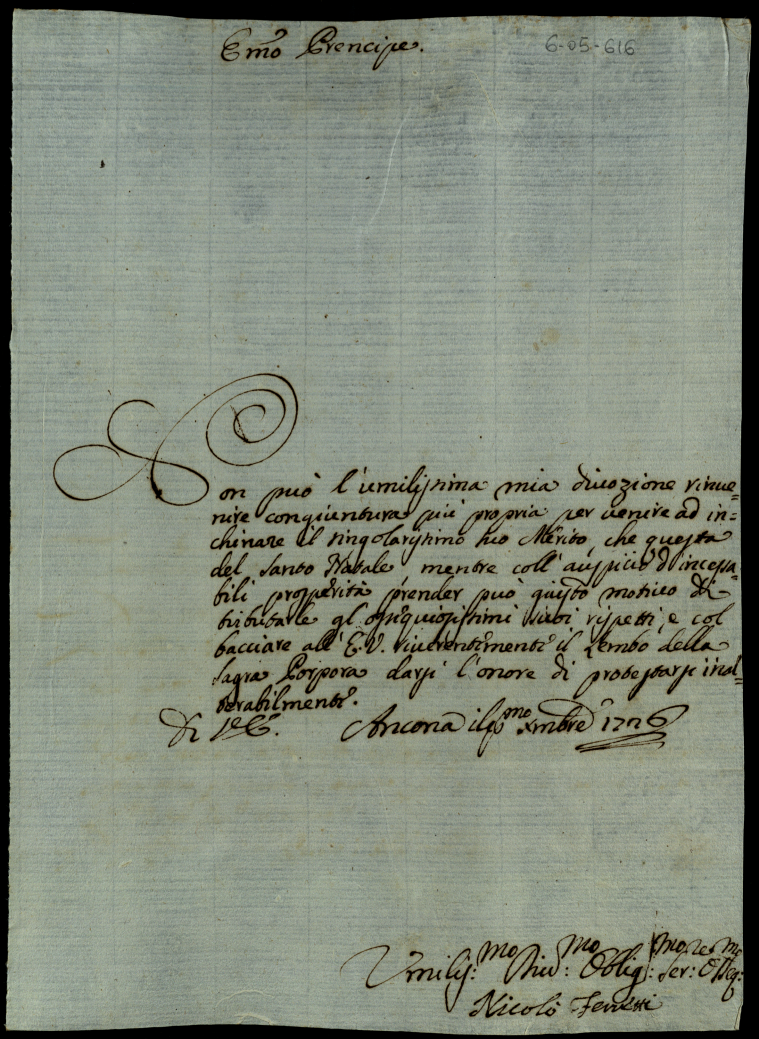 Emo͂ Prencipe.
6-05-616
Non può l'umilissima mia divozione rinve=
nire congiuntura più propria per venire ad in=
chinare il singolarissimo suo Merito, che questa
del Santo Natale, mentre coll'auspicio d'incessa=
bili prosperità prender può giusto motivo di
tributarle gl'ossequiosissimi suoi rispetti, e col
bacciare all'E.V. riverentementeͤ il Lembo della
Sagra Porpora darsi l'onore di protestarsi inal=
terabilmenteͤ.
Di V.E. Ancona il pmo Xmbre 1726
Umiliss:mo Div:mo Obblig:mo Ser:re Osseq:mo
Nicolò Ferretti